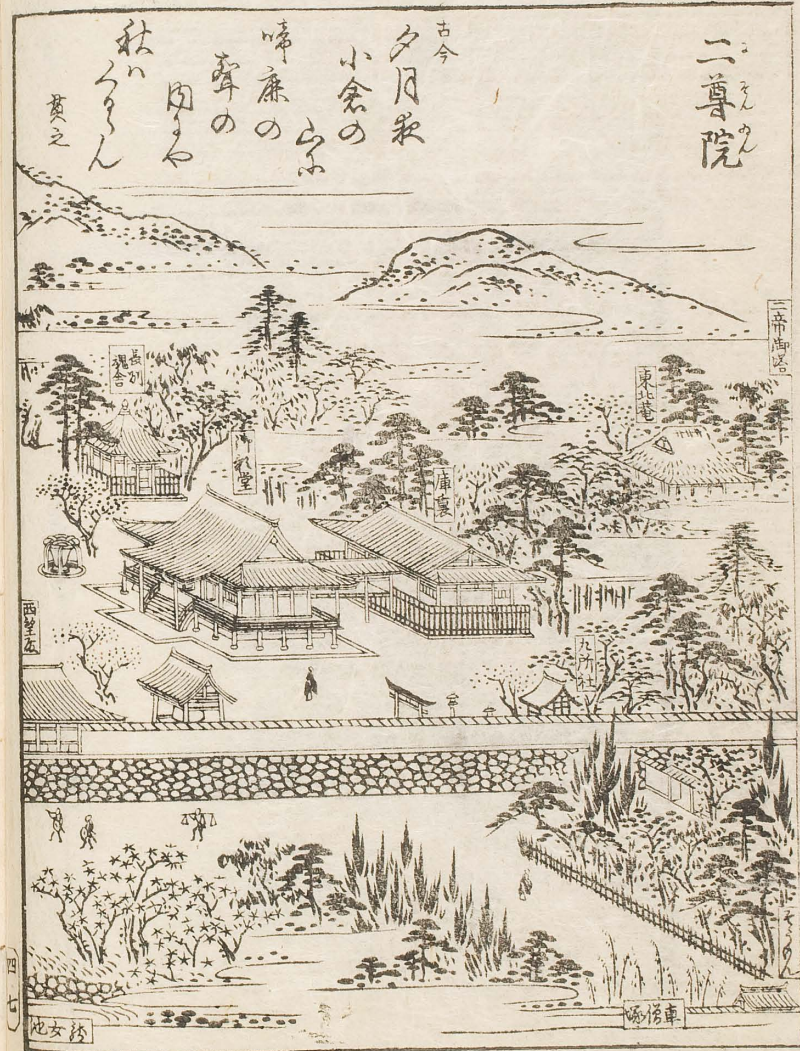 二尊院
にそんゐん
古今
夕月夜
小倉の
山に
啼鹿の
聲の
内にや
秋は
くるらん
貫之
三帝御塔
東北菴
庫裏
御影堂
九所社
車僧塚
女池
四七